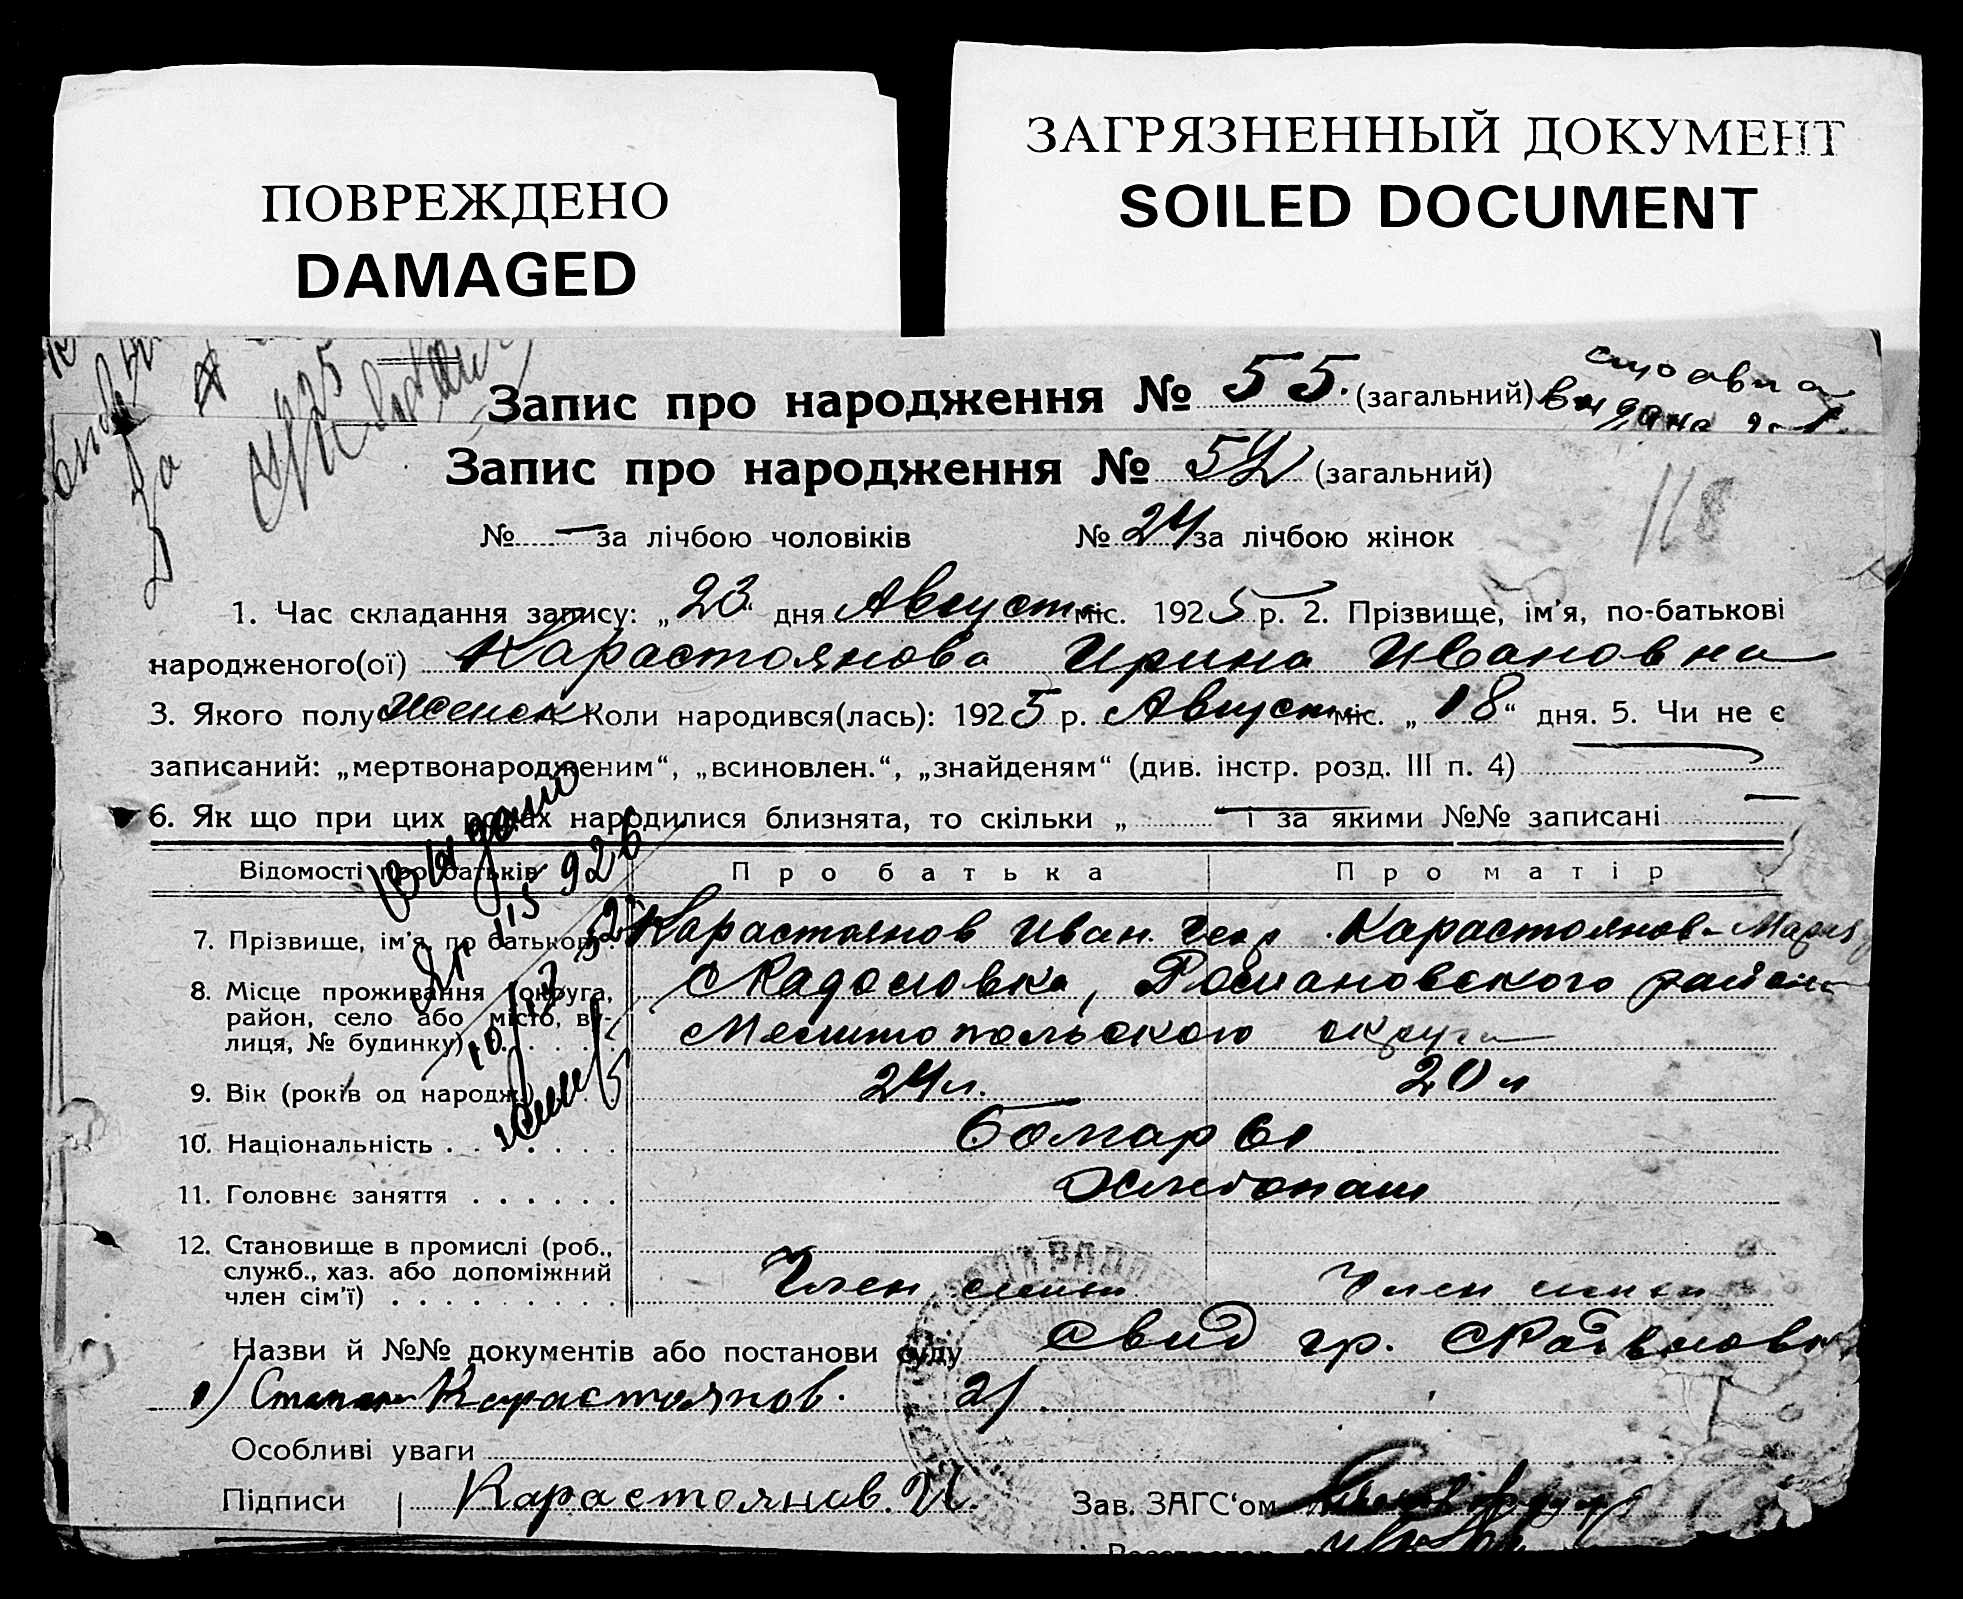 ПОВРЕЖДЕНО
DAMAGED
ЗАГРЯЗНЕННЫЙ ДОКУМЕНТ
SOILED DOCUMENT
Запис про народження № 55. (загальний)
Запис про народження № 54 (загальний)
168
№ — за лічбою чоловіків № 24 за лічбою жінок
1. Час складання запису: „23“ дня Август міс. 1925 р. 2. Прізвище, ім'я, по-батькові
народженого(ої) Карастоянова Ирина Ивановна
3. Якого полу женск Коли народився(лась): 1925 р. Август міс. „18“ дня. 5. Чи не є
записаний: „мертвонародженим“, „всиновлен.“, „знайденям“ (див. інстр. розд. III п. 4) —
6. Як що при цих родах народилися близнята, то скільки „ — і за якими №№ записані —
Відомості про батьків Про батька Про матір
Выдано
7. Прізвище, ім'я, по батькові Карастоянов Иван Геор. Карастоянов-
8. Місце проживання (округа, район, село або місто, вулиця, № будинку) Романовского района
Мелитопольского округа
9. Вік (років од народж.) 24 л. 20 л
10. Національність . . . . . . . Болгары
11. Головне заняття . . . . . . Хлебопаш
12. Становище в промислі (роб.,
служб., хаз. або допоміжний
член сім'ї) . . . . . . . . . Член семьи Член семьи
Назви й №№ документів або постанови суду Свид гр.
1) Степан Карастоянов. 2)
Особливі уваги
Підписи Карастоянов. И. Зав. ЗАГС'ом